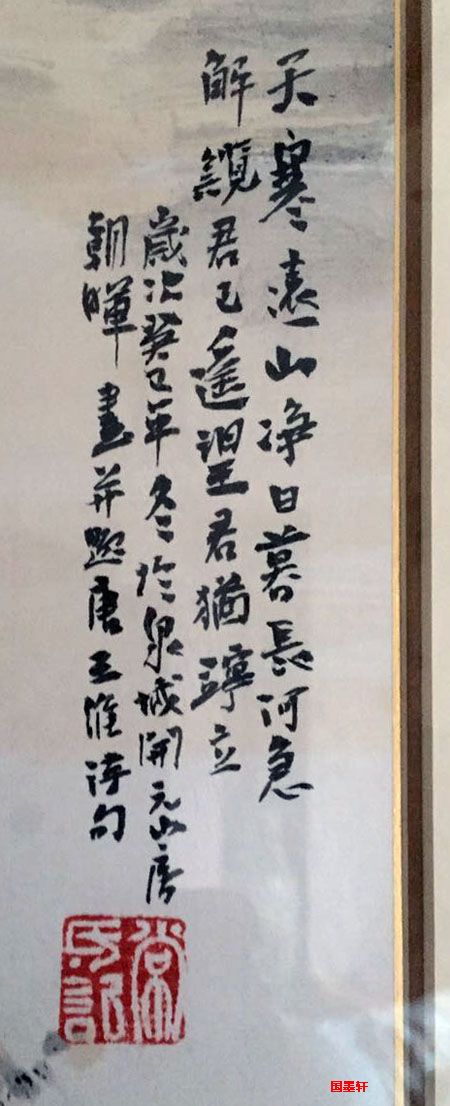 天寒遠山净日暮長河急
解纜君已遥望君猶竚立
歲次癸巳年冬於泉城開元山房
朝暉畫并題唐王維詩句
常氏記
国墨轩